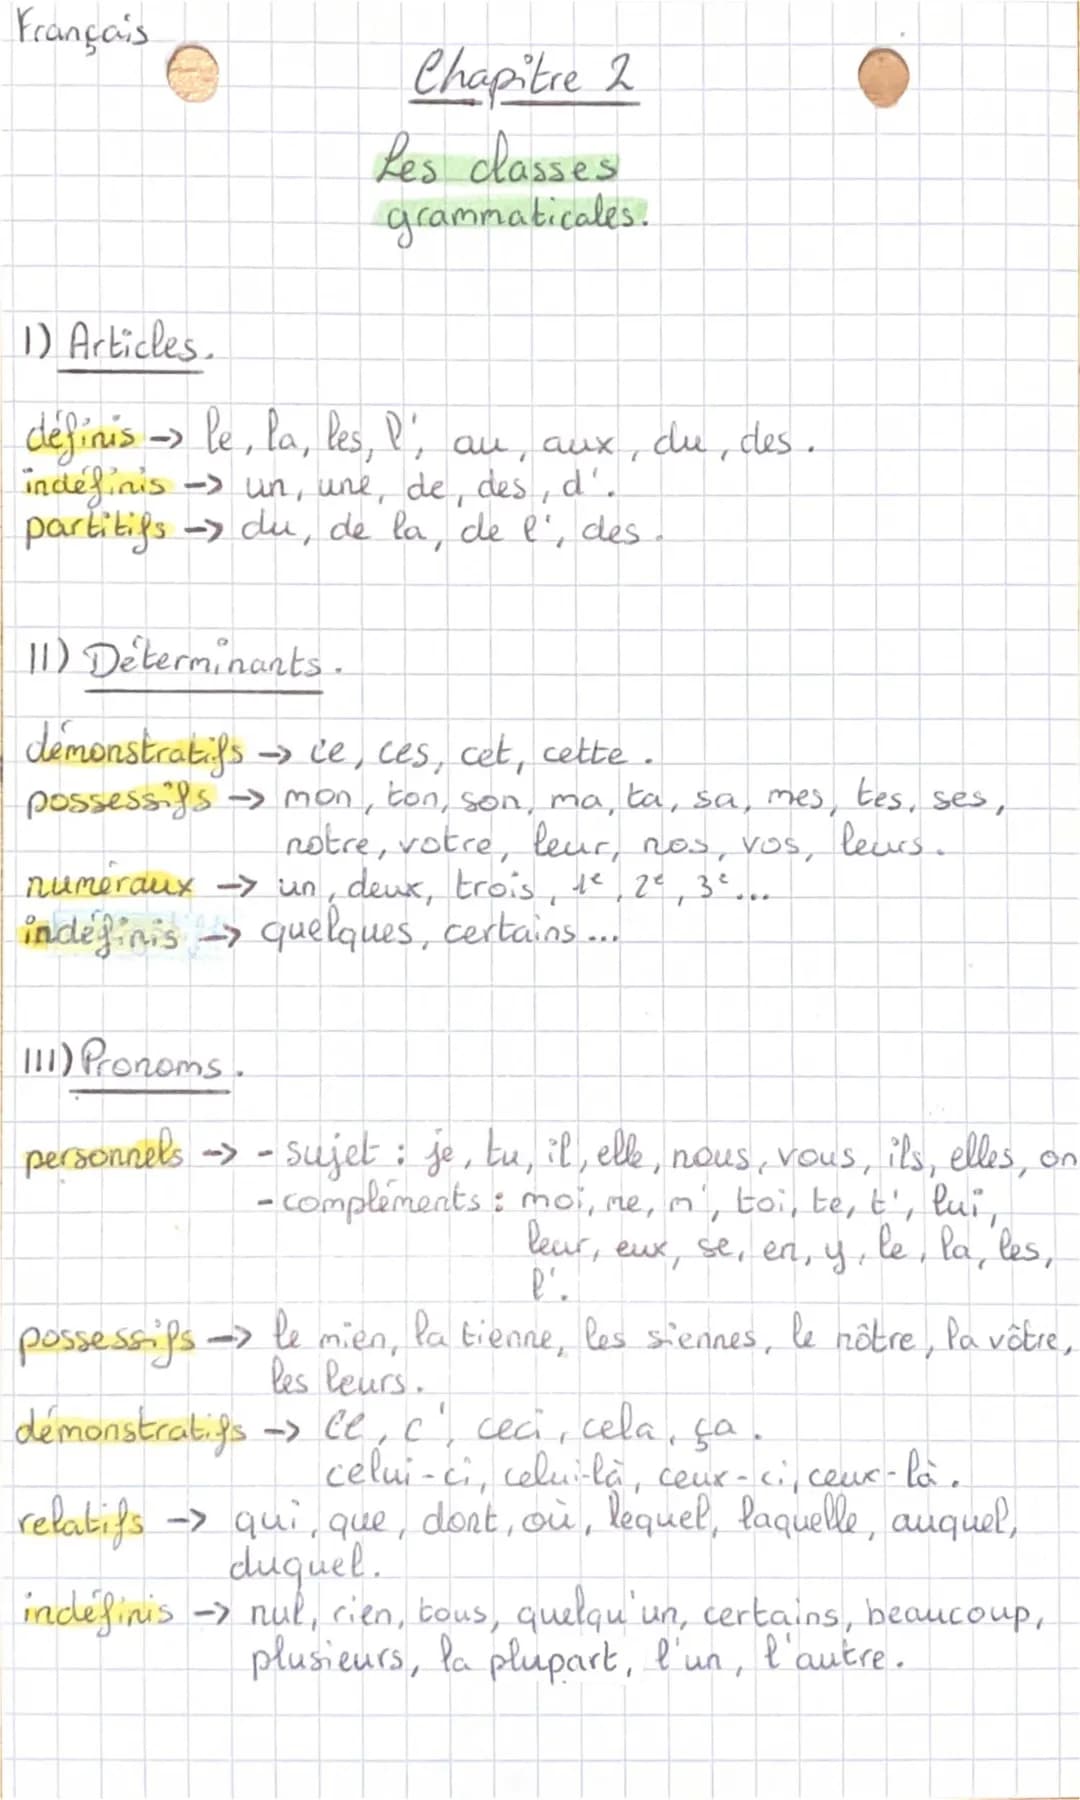 Français
Chapitre 2
Les classes
grammaticales.
I) Articles.
définis -> le, la, les, l', au, aux, du, des.
indéfinis -> un, une, de, des, d'.
partitifs -> du, de la, de l', des.
II) Déterminants.
démonstratifs -> ce, ces, cet, cette.
possessifs -> mon, ton, son, ma, ta, sa, mes, tes, ses,
notre, votre, leur, nos, vos, leurs.
numéraux -> un, deux, trois, 1e, 2e, 3e...
indéfinis -> quelques, certains...
III) Pronoms.
personnels -> - sujet : je, tu, il, elle, nous, vous, ils, elles, on
- compléments : moi, me, m', toi, te, t', lui,
leur, eux, se, en, y, le, la, les,
l'.
possessifs -> le mien, la tienne, les siennes, le nôtre, la vôtre,
les leurs.
démonstratifs -> ce, c', ceci, cela, ça.
celui-ci, celui-là, ceux-ci, ceux-là.
relatifs -> qui, que, dont, où, lequel, laquelle, auquel,
duquel.
indéfinis -> nul, rien, tous, quelqu'un, certains, beaucoup,
plusieurs, la plupart, l'un, l'autre.